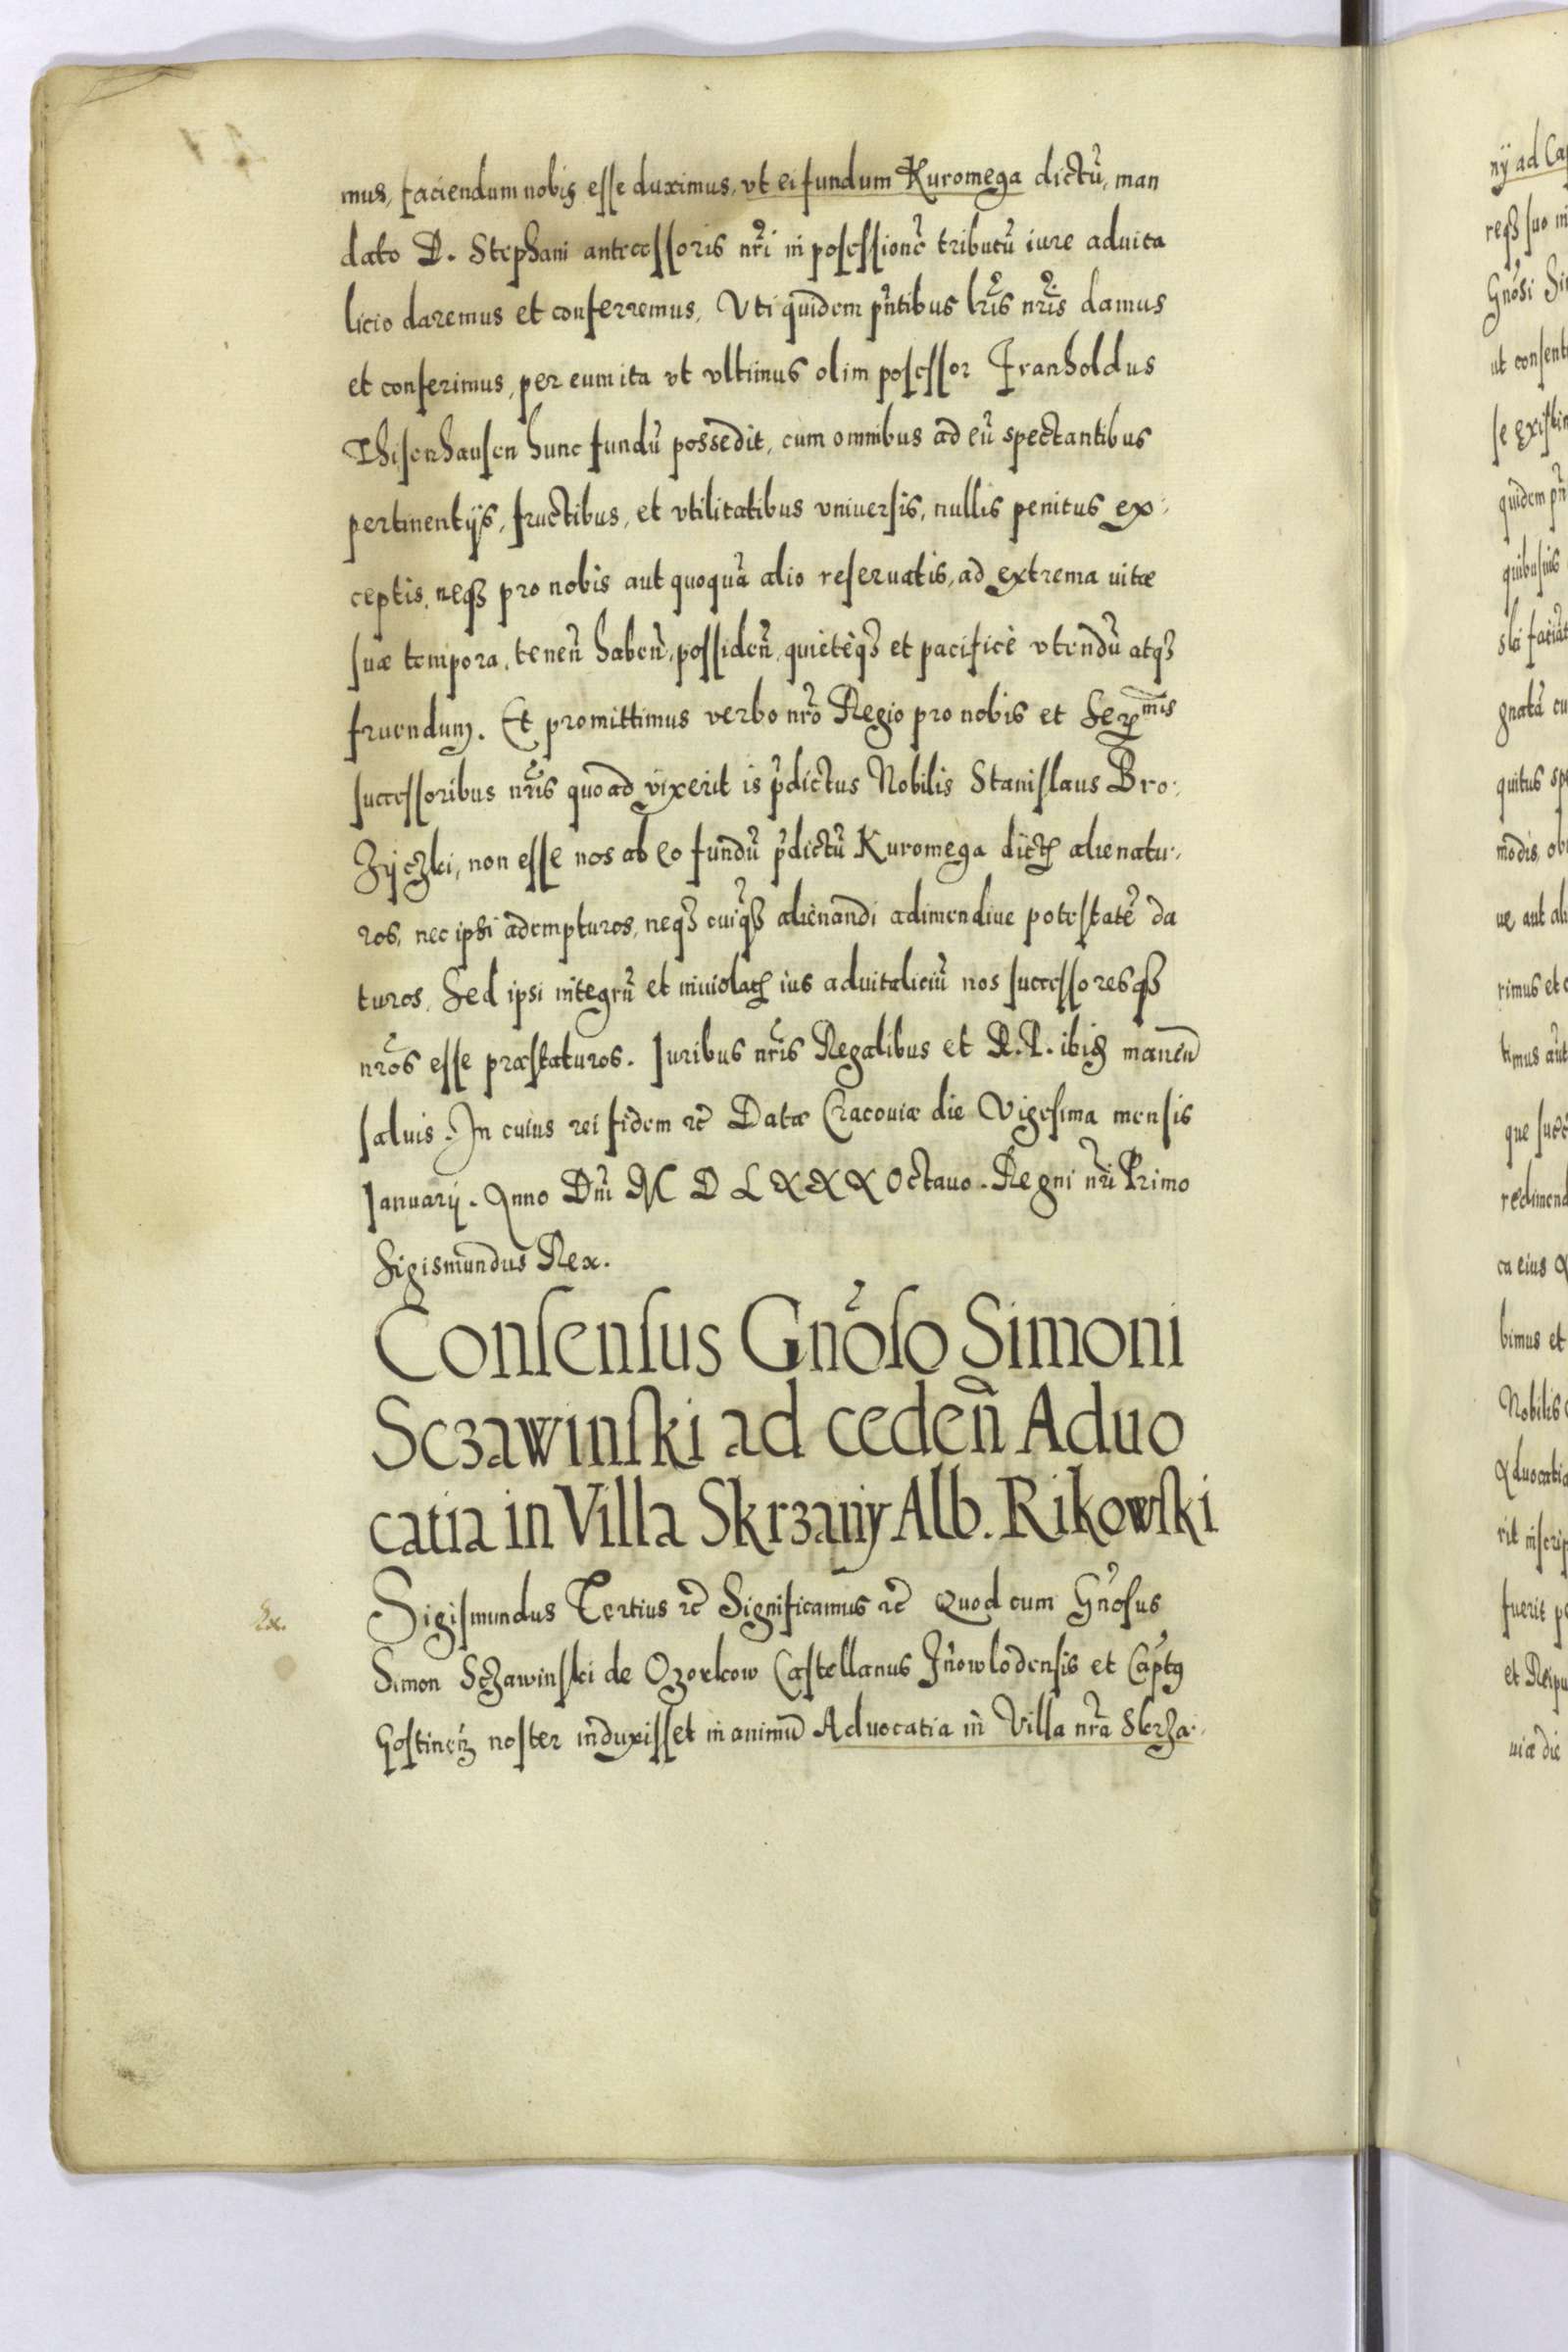 mus, faciendum nobis esse duximus, vt ei fundum Kuromega dictũ, man
dato D. Stephani antecessoris nr̃i in possessionẽ tributũ iure aduita
licio daremus et conferremus, Vti quidem pñtibus lr̃is nr̃is damus
et conferimus, per eum ita vt vltimus olim possessor Franholdus
Thisenhausen hunc fundũ possedit, cum omnibus ad eũ spectantibus
pertinentijs, fructibus, et vtilitatibus vniuersis, nullis penitus ex-
ceptis, neqȝ pro nobis aut quoquã alio reseruatis, ad extrema uitæ
suæ tempora, teneñ habeñ, possideñ, quietèqȝ et pacificè vtendũ atqȝ
fruendum. Et promittimus verbo nr̃o Regio pro nobis et Serᵐⁱˢ
successoribus nr̃is quoad vixerit is p̃dictus Nobilis Stanislaus Bro-
zÿczki, non esse nos ab eo fundũ p̃dictũ Kuromega dictũ alienatu-
ros, nec ipsi adempturos, neqȝ cuiqȝ alienandi adimendiue potestatẽ da
turos, Sed ipsi integrũ et inuiolatũ ius aduitaliciũ nos successoresqȝ
nr̃os esse præstaturos. Iuribus nr̃is Regalibus et R. P. ibiȝ maneñ
saluis. In cuius rei fidem rc̃ Datæ Cracouiæ die Vigesima mensis
Ianuarij. Anno Dñi M D L X X X Octauo. Regni nr̃i Primo
Sigismundus Rex.
Consensus Gnõso Simoni
Sczawinski ad cedeñ Aduo
catia in Villa Skrzanÿ Alb. Rikowski
Ex.
Sigismundus Tertius rc̃ Significamus rc̃ Quod cum Gñosus
Simon Sczawinski de Ozorkow Castellanus Inowlodensis et Capt9
Gostineñ noster induxisset in animũ Aduocatia in Villa nr̃a Skrza-